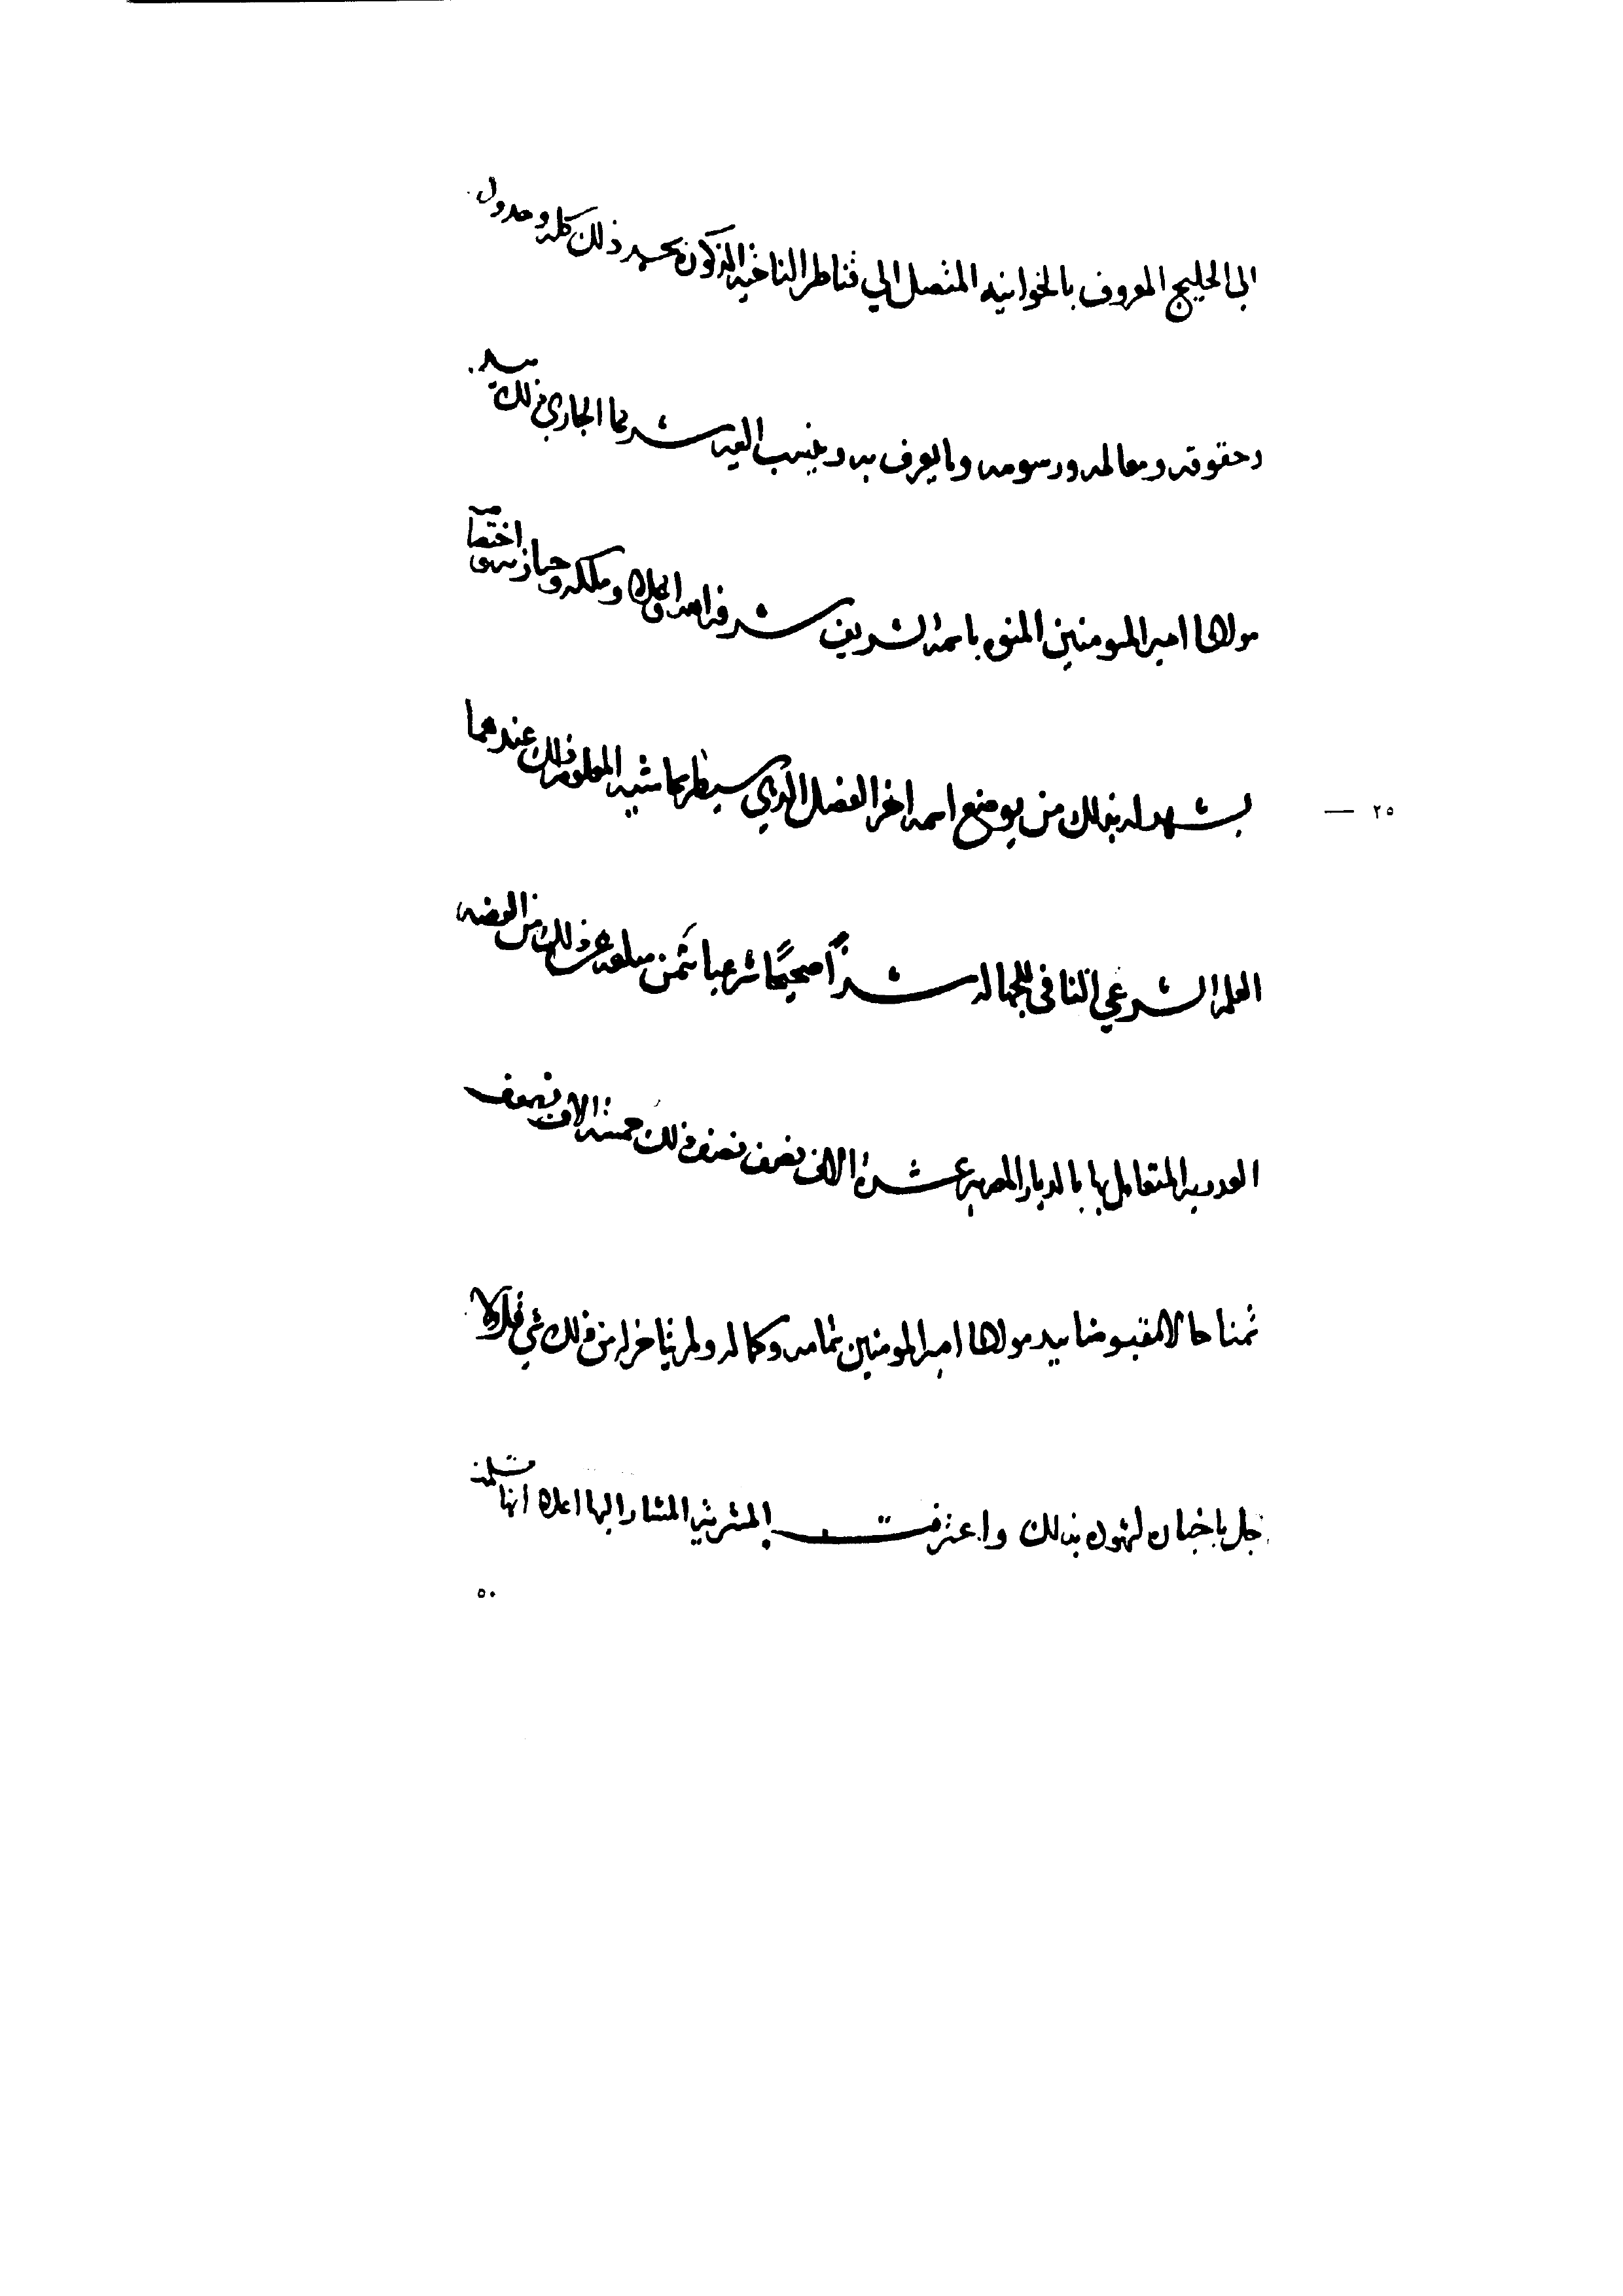 الى الخليج المعروف بالخوانيه المتصل الي قناطر الناحيه المذكوره بحد ذلك كله وحدوده
وحقوقه ومعالمه ورسومه وما يعرف به وينسب اليه شرعا الجاري ذلك بيد
مولانا امير المومنين المنوه باسمه الشريف شرفه الله اعلاه وملكه وحيازته
يشهد له بذلك من يوضع اسمه اخر الفصل الذي سيطر بهامشيه المعلوم ذلك عندهما
٢٥ —
العلم الشرعي النافي للجهاله شراً صحيحًا شرعيا بثمن مبلغه عن ذلك من الفضه
العدديه المتعامل بها بالديار المصريه عشرة الاف نصف نصف ذلك خمسة الاف نصف
ثمنا حالا مقبوضا بيد مولانا امير المومنين بتمامه وكماله ولم يتاخر له من ذلك شي قل ولا
جل باخباره لشهوده بذلك واعترفت المشتريه المشار اليها اعلاه انها
٥٠